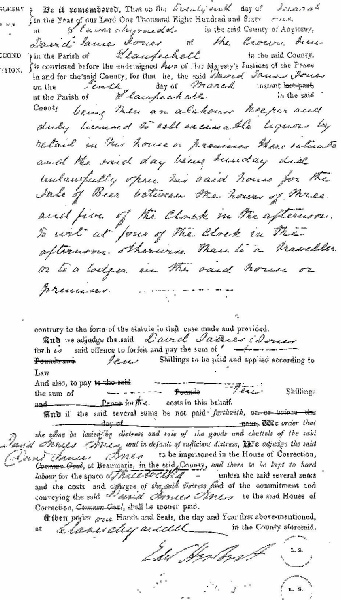 Be it remembered, That on the day of March
in the Year of our Lord One Thousand Eight Hundred and Sixty one
at Llanerchymedd in the said County of Anglesey,
David James Jones of the Crown Inn
in the Parish of in the said County,
is convicted before the undersigned of Her Majesty's Justices of the Peace
in and for the said County, for that he, the said David James Jones
on the Tenth day of March instant
at the Parish of in the said
County being then an alehouse keeper and
duly licensed to sell exciseable liquors by
retail in his house or premises there situate
and the said day being Sunday did
unlawfully open his said house for the
Sale of Beer between the hours of three
and five of the Clock in the afternoon
To wit at four of the Clock in the
afternoon otherwise than to a traveller
or to a lodger in the said house or
premises
contrary to the form of the statute in that case made and provided.
And we adjudge the said David James Jones
for his said offence to forfeit and pay the sum of
Ten Shillings to be paid and applied according to
Law
And also, to pay to the said
the sum of Pounds Shillings
and Pence for costs in this behalf.
And if the said several sums be not paid forthwith, on or before the
day of next, We order that
the same be levied by distress and sale of the goods and chattels of the said
David James Jones and in default of sufficient distress, We adjudge the said
David James Jones to be imprisoned in the House of Correction,
Common Gaol, at Beaumaris, in the said County, and there to be kept to hard
labour for the space of unless the said several sums
and the costs and charges of the said distress and of the commitment and
conveying the said David James Jones to the said House of
Correction, Common Gaol, shall be sooner paid.
Given under our Hands and Seals, the day and Year first above-mentioned,
at Llanerchymedd in the County aforesaid.
L. S.
L. S.